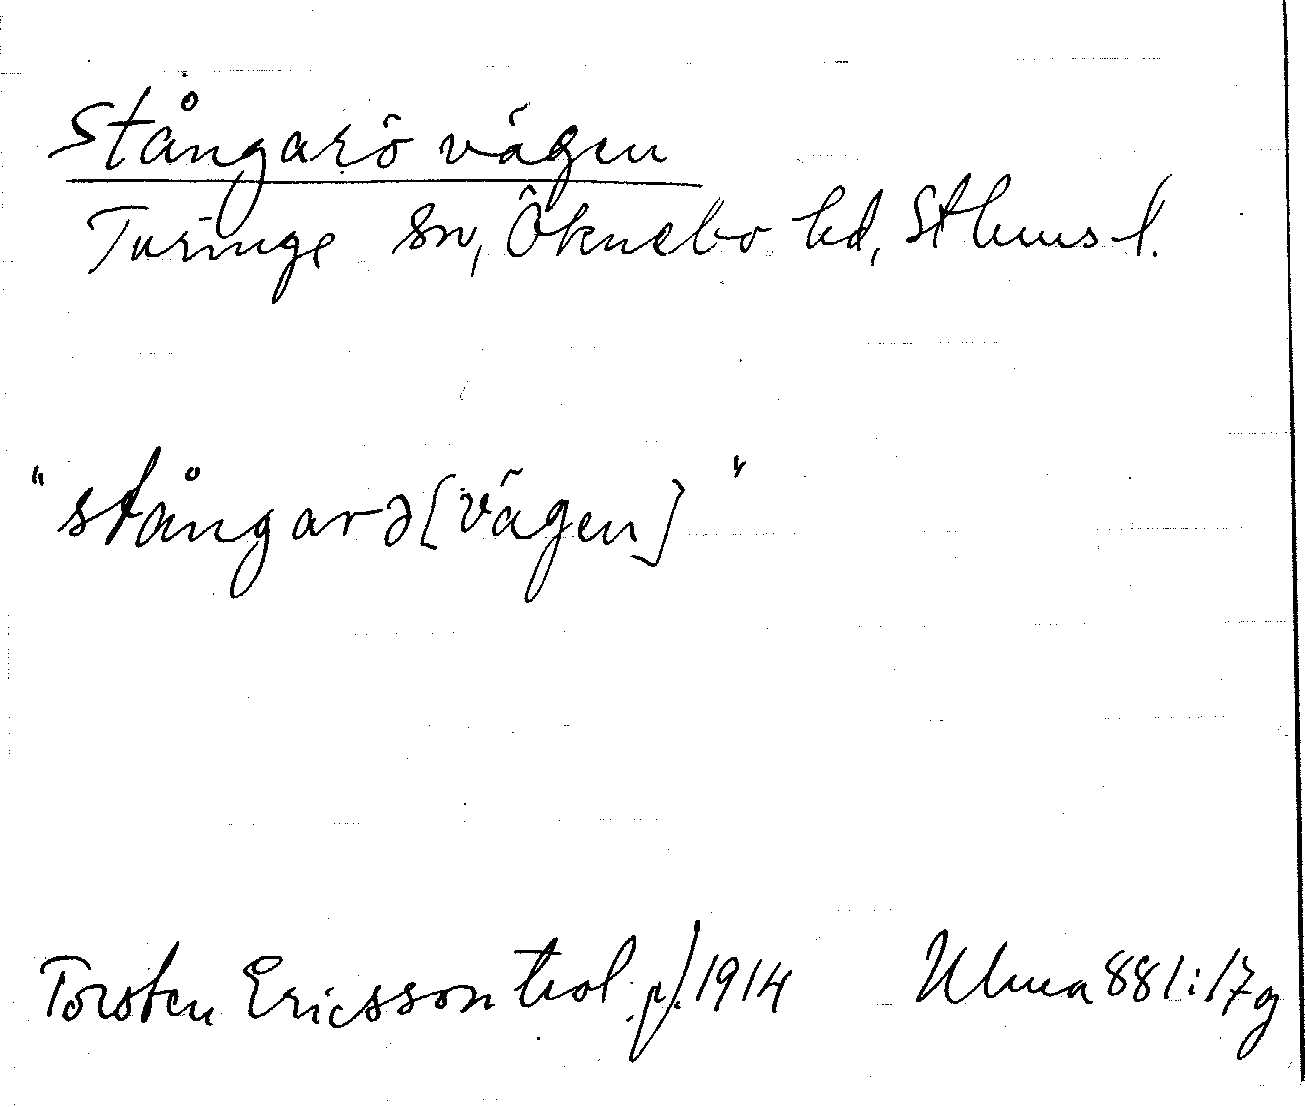 Stångarö vägen
Turinge sn, Öknebo hd, Sthms l.
"stångarə[vägen]"
Torsten Ericsson 1914 Ulma 881:17g